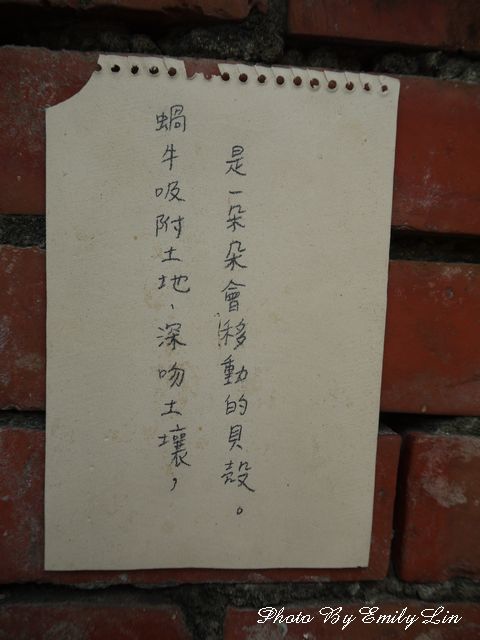 蝸牛吸附土地、深吻土壤，
是一朵朵會移動的貝殼。
Photo By Emily Lin